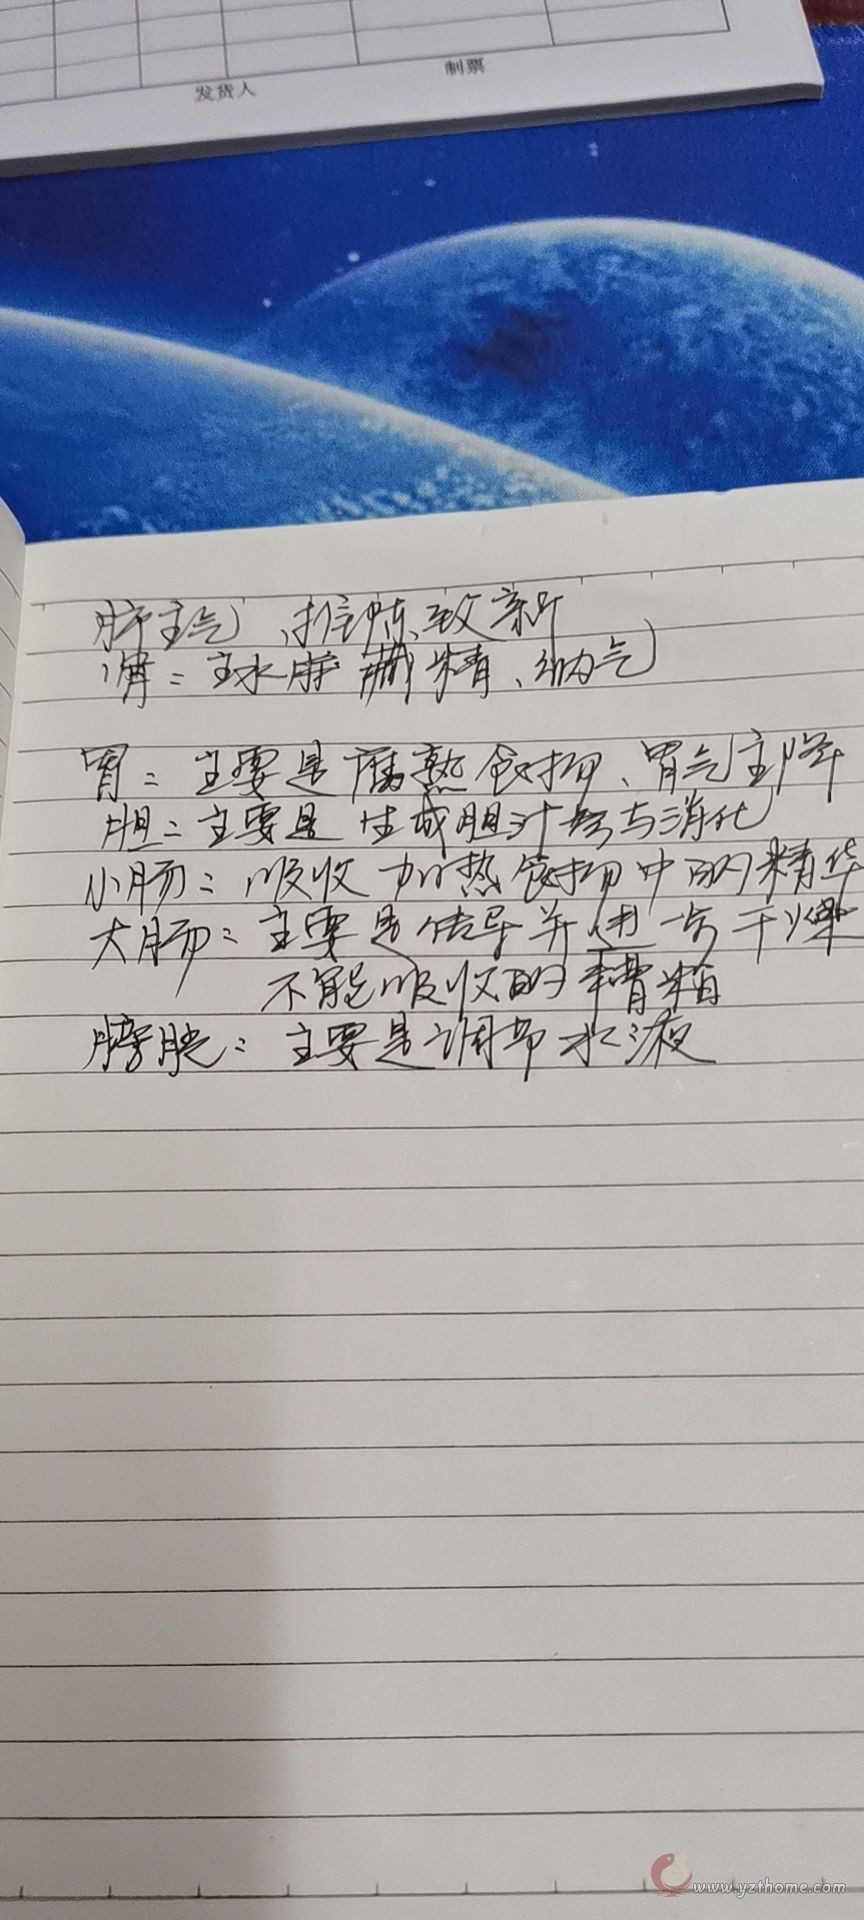 发货人 制票
肺主气、推陈致新
肾：主水 藏精、纳气
胃：主要是腐熟食物、胃气主降
胆：主要是生成胆汁参与消化
小肠：吸收加热食物中的精华
大肠：主要是传导并进一步干燥
不能吸收的糟粕
膀胱：主要是调节水液
www.yzthome.com